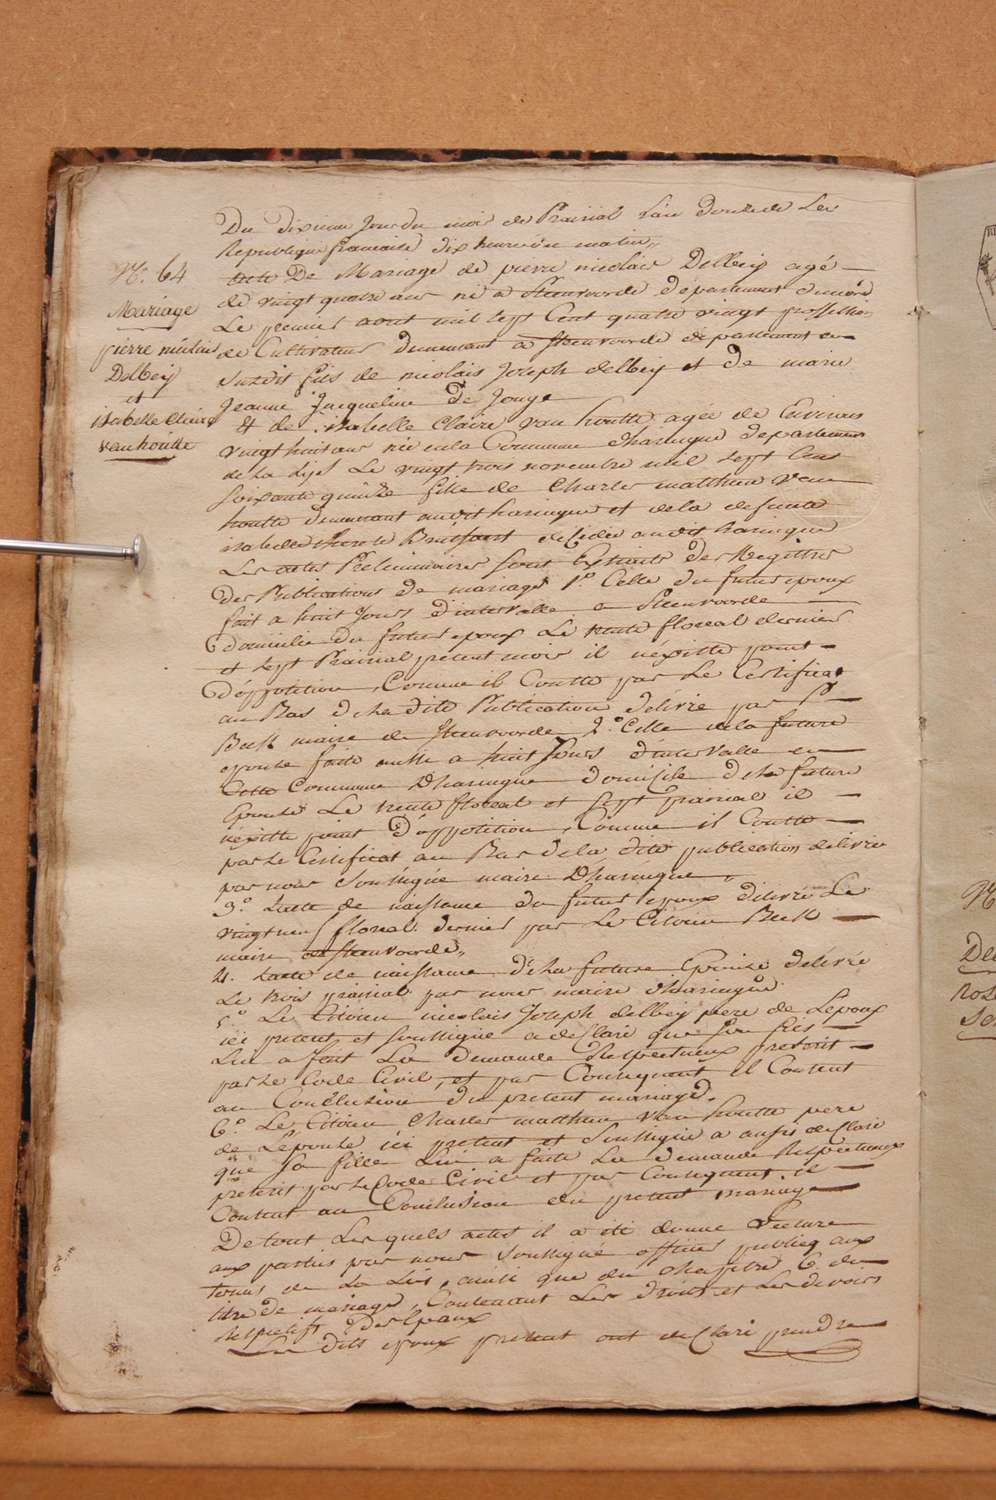 N°. 64
Mariage
pierre nicolais
Delbeij
et
isabelle Claire
van houtte
Du dixieme Jour du mois de Prairial l'an Douze de La
Republique française dix heure du matin,,
acte De Mariage de pierre nicolais Delbeij agé
de vingt quatre ans né a Steenvoorde departement du nord
Le premier aout mil sept Cent quatre vingt proffession
de Cultivateur demeurant a Steenvoorde departement
Susdit fils de nicolais Joseph delbeij et de marie
Jeanne Jacqueline De Jonge
& de isabelle Claire van houtte agée de Environ
vingt huit ans née en la Commune dharingue departement
de la Lys Le vingt trois novembre mil sept Cens
Soixante quinze fille de Charle matthieu van
houtte demeurant audit haringue et de la defunte
isabelle decedée audit haringue
Les actes Preliminaires sont Extraits des Registres
Des Publications de mariages 1° Celle du futur epoux
fait a huit Jours d'intervalle a Steenvoorde
domicilie du futur epoux Le trente floreal dernier
et sept Prairial present mois il n'existte point
d'öppotition, Comme il Contte par Le Certificat
au Bas de La dite Publication délivré par
maire de Steenvoorde 2° Celle de la future
epouse faite aussi a huit Jours d'intervalle en
Cette Commune Dharingue domicile de la future
Epouse Le trente floreal et sept prairial il
n'éxitte point D'öppotition, Comme il Contte
par Le Certificat au Bas de la dite publication délivré
par nous Soussigné maire Dharingue,
3° L'acte de naissance du futur epoux délivré Le
vingt neuf floreal dernier par Le Citoien
maire de Steenvoorde,,
4. L'acte de naissance de La future Epouse délivré
Le trois prairial par nous maire dharingue
5° Le Citoien nicolais Joseph delbeij pere de L'epoux
ici present et soussigné a declaré que son fils
Lui a fait La demande Respectueux prescrit
par Le Code Civil, et par Consequent il Consent
au Conclusion du present mariage.
6° Le Citoien Charles matthieu van houtte pere
de L'epouse ici present et Soussigné a aussi declaré
que Sa fille Lui a faite La demande Respectueux
prescrit par Le Code Civil et par Consequent il
Consent au Conclusion du present mariage
De tout Les quels actes il a été donné Lecture
aux parties par nous Soussigné officier publicq aux
termes de La Loi, ainsi que du chapitre 6. du
titre de mariage, Contenant Les droits et Les devoirs
Respectifs des Epoux
Les dits epoux present ont declaré prendre